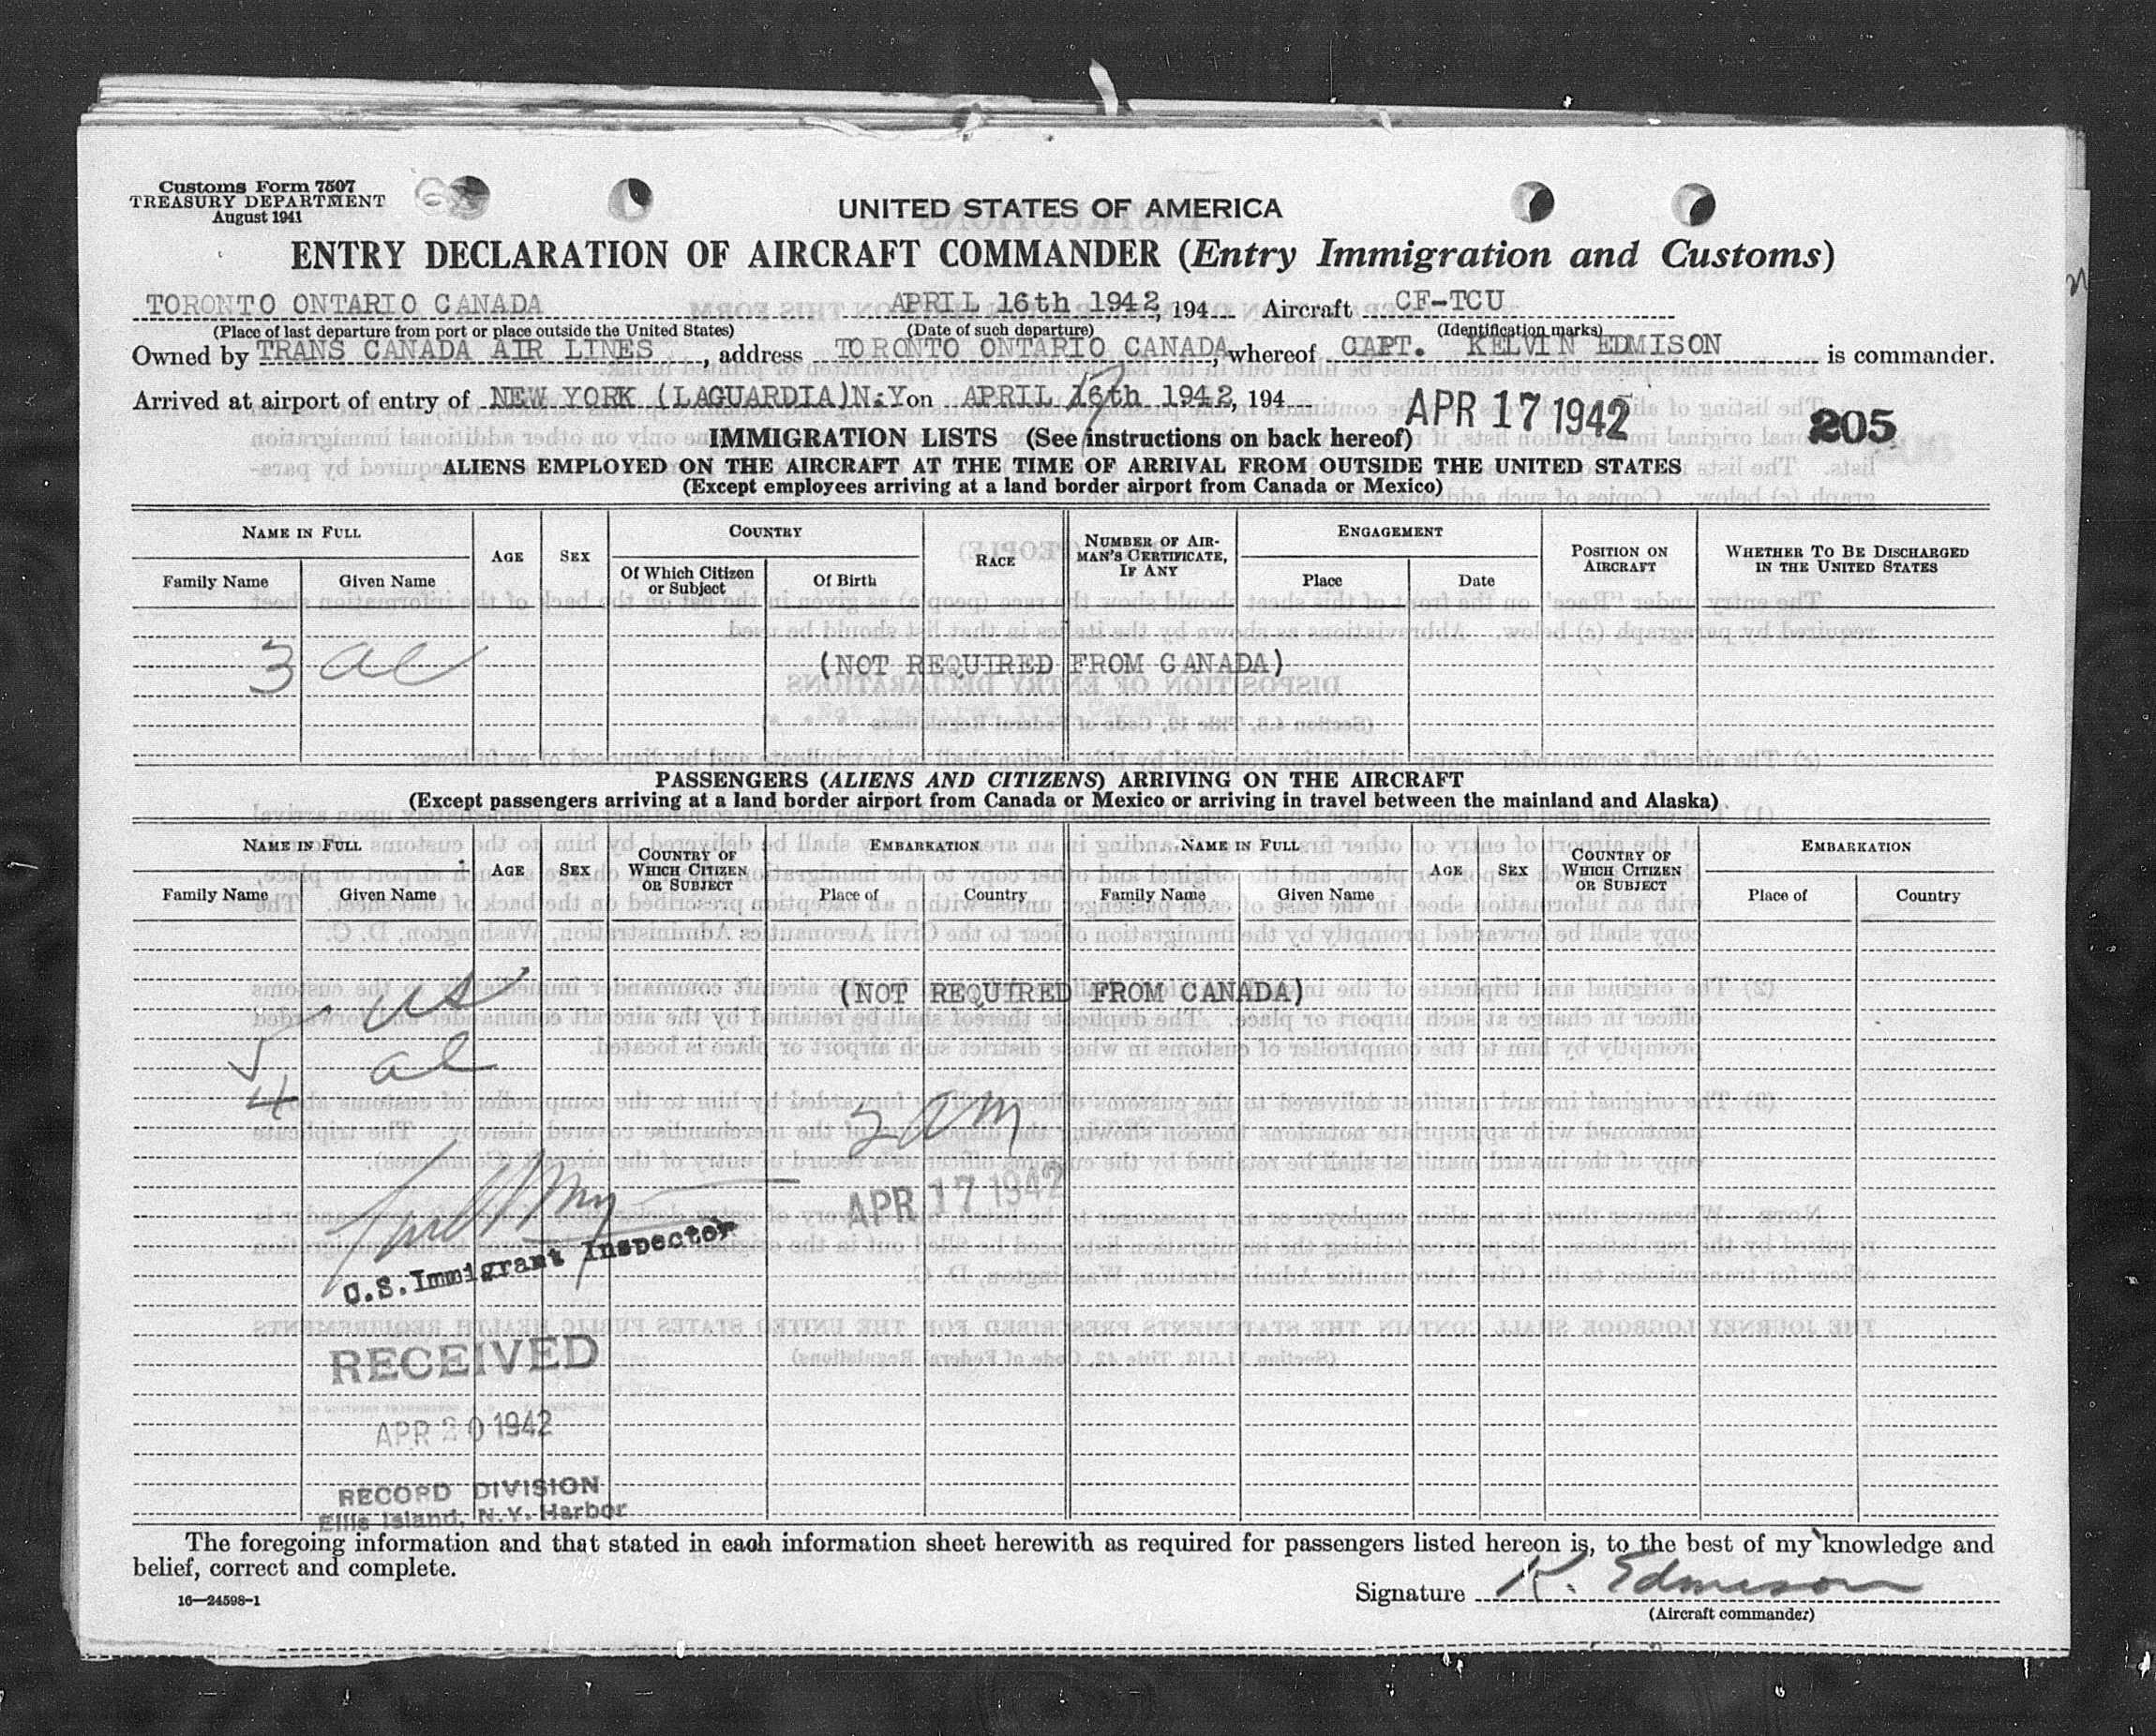 Customs Form 7507
TREASURY DEPARTMENT
August 1941
UNITED STATES OF AMERICA
ENTRY DECLARATION OF AIRCRAFT COMMANDER (Entry Immigration and Customs)
TORONTO ONTARIO CANADA APRIL 16th 1942, 194 Aircraft CF-TCU
(Place of last departure from port or place outside the United States) (Date of such departure) (Identification marks)
Owned by TRANS CANADA AIR LINES, address TORONTO ONTARIO CANADA, whereof CAPT. KELVIN EDMISON is commander.
Arrived at airport of entry of NEW YORK (LAGUARDIA)N.Y on APRIL 17th 1942, 194 APR 17 1942 205
IMMIGRATION LISTS (See instructions on back hereof)
ALIENS EMPLOYED ON THE AIRCRAFT AT THE TIME OF ARRIVAL FROM OUTSIDE THE UNITED STATES
(Except employees arriving at a land border airport from Canada or Mexico)
NAME IN FULL AGE SEX COUNTRY RACE NUMBER OF AIRMAN'S CERTIFICATE, IF ANY ENGAGEMENT POSITION ON AIRCRAFT WHETHER TO BE DISCHARGED IN THE UNITED STATES
Family Name Given Name Of Which Citizen or Subject Of Birth Place Date
3 al (NOT REQUIRED FROM CANADA)
PASSENGERS (ALIENS AND CITIZENS) ARRIVING ON THE AIRCRAFT
(Except passengers arriving at a land border airport from Canada or Mexico or arriving in travel between the mainland and Alaska)
NAME IN FULL AGE SEX COUNTRY OF WHICH CITIZEN OR SUBJECT EMBARKATION NAME IN FULL AGE SEX COUNTRY OF WHICH CITIZEN OR SUBJECT EMBARKATION
Family Name Given Name Place of Country Family Name Given Name Place of Country
us (NOT REQUIRED FROM CANADA)
5 al
4
2 am
APR 17 1942
U.S. Immigrant Inspector
RECEIVED
APR 20 1942
RECORD DIVISION
Ellis Island, N.Y. Harbor
The foregoing information and that stated in each information sheet herewith as required for passengers listed hereon is, to the best of my knowledge and
belief, correct and complete.
Signature K. Edmison
16—24598-1 (Aircraft commander)